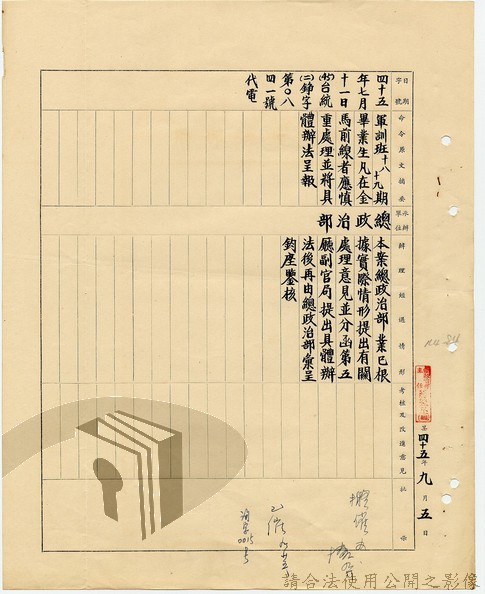 日期
字號
四十五
年七月
十一日
(45)台統
(二)錚字
第〇八
四一號
代電
命令原文摘要
軍訓班十八十九期
畢業生凡在金
馬前線者應慎
重處理並將具
體辦法呈報
承辦
單位
總政治部
辦理經過情形
本業總政治部業已根
據實際情形提出有關
處理意見並分函第五
廳副官局提出具體辦
法後再由總政治部彙呈
鈞座鑒核
考核及改進意見
批示
四十五年九月五日
已催
請合法使用公開之影像